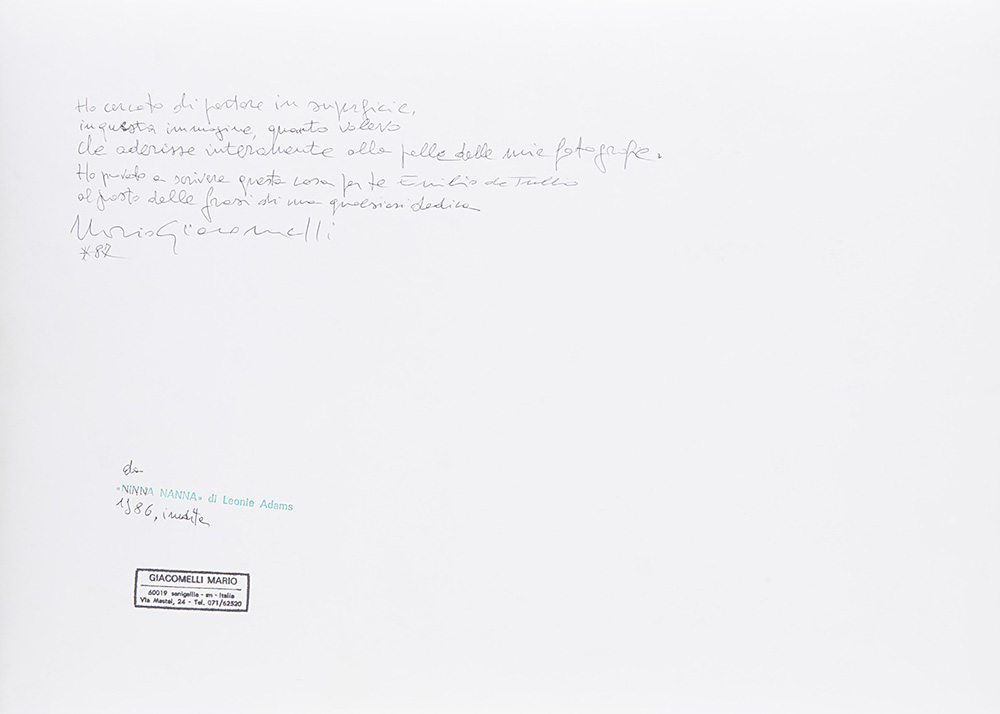 Ho cercato di portare in superficie,
in questa immagine, quanto volevo
che aderisse interamente alla pelle delle mie fotografie.
Ho provato a scrivere questa cosa per te Emilio de Tullio
al posto delle frasi di una qualsiasi dedica
Mario Giacomelli
*-87
da
«NINNA NANNA» di Leonie Adams
1986, inedita
GIACOMELLI MARIO
60019 senigallia - an - Italia
Via Mastai, 24 - Tel. 071/62520